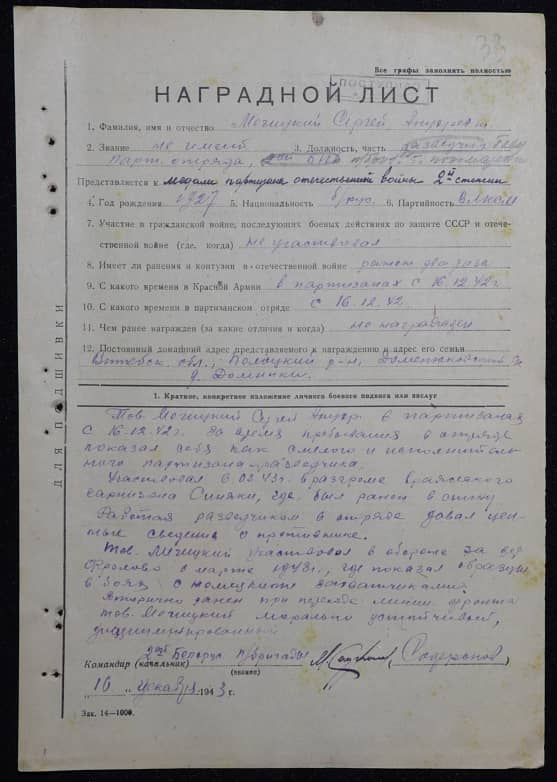 Все графы заполнять полностью
НАГРАДНОЙ ЛИСТ
1. Фамилия, имя и отчество Мочицкий Сергей
2. Звание не имеет 3. Должность, часть разведчик
парт. отряда,
Представляется к медали партизана отечественной войны 2й степени
4. Год рождения 1927 5. Национальность 6. Партийность
7. Участие в гражданской войне, последующих боевых действиях по защите СССР и отече-
ственной войне (где, когда) не участвовал
8. Имеет ли ранения и контузии в отечественной войне ранен два раза
9. С какого времени в Красной Армии в партизанах с 16.12.42г
10. С какого времени в партизанском отряде с 16.12.42
11. Чем ранее награжден (за какие отличия и когда) не награжден
12. Постоянный домашний адрес представляемого к награждению и адрес его семьи
Витебск. обл., Полоцкий р-н,
д.
1. Краткое, конкретное изложение личного боевого подвига или заслуг
Тов. Мочицкий Сергей в партизанах
с 16.12.42г. За время пребывания в отряде
показал себя как смелого и исполнитель-
ного партизана-разведчика.
Участвовал в 02.43г. в разгроме вражеского
гарнизона где был ранен в
Работая разведчиком в отряде давал цен-
ные сведения о противнике.
Тов. Мочицкий участвовал в обороне за дер
с марте 1943г., где показал образцы
в боях с немецкими захватчиками.
Вторично ранен при переходе линии фронта
тов. Мочицкий морально устойчивый,
дисциплинированный
2ой Белорус п/бригады
Командир (начальник) (Сафронов)
(подпись)
"16" декабря 1943 г.
Зак. 14—1000.
ДЛЯ ПОДШИВКИ